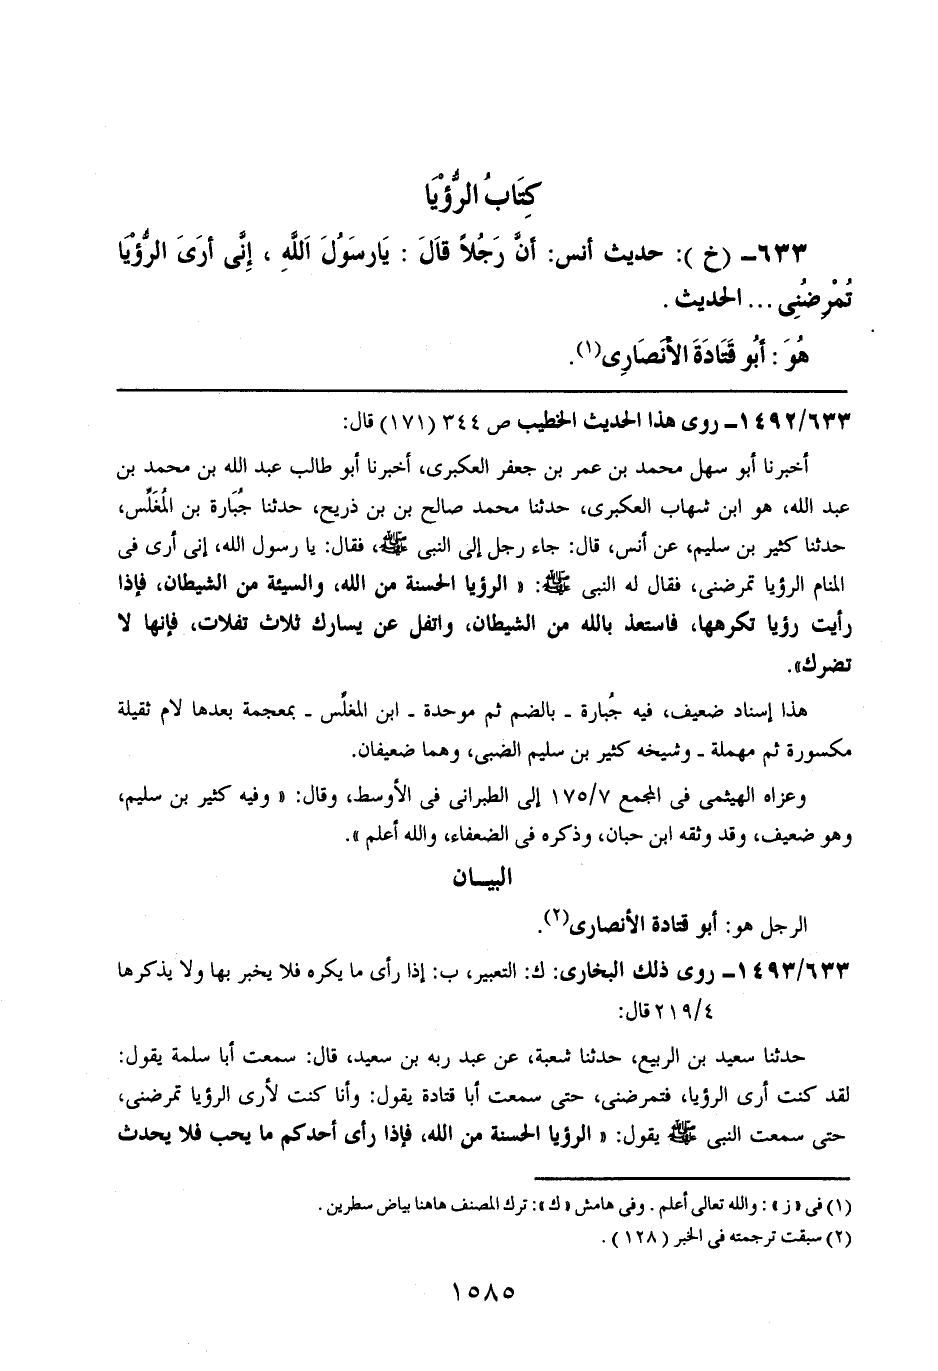 كِتَابُ الرُّؤْيَا
٦٣٣ـ (خ): حديث أنس: أَنَّ رَجُلاً قَالَ : يَارسَوُلَ اَللَّهِ ، إِنَّى أرَىَ الرُّؤْيَا
تُمْرِضُنِى ... الحديث .
هُوَ : أبُو قَتَادَةَ الأنَصَارِى(١).
١٤٩٢/٦٣٣ـ روى هذا الحديث الخطيب ص ٣٤٤ (١٧١) قال:
أخبرنا أبو سهل محمد بن عمر بن جعفر العكبرى، أخبرنا أبو طالب عبد الله بن محمد بن
عبد الله، هو ابن شهاب العكبرى، حدثنا محمد صالح بن بن ذريح، حدثنا جُبَارة بن المُغَلِّس،
حدثنا كثير بن سليم، عن أنس، قال: جاء رجل إلى النبى ﷺ، فقال: يا رسول الله، إنى أرى فى
المنام الرؤيا تمرضنى، فقال له النبى ﷺ: « الرؤيا الحسنة من الله، والسيئة من الشيطان، فإذا
رأيت رؤيا تكرهها، فاستعذ بالله من الشيطان، واتفل عن يسارك ثلاث تفلات، فإنها لا
تضرك».
هذا إسناد ضعيف، فيه جُبارة ـ بالضم ثم موحدة ـ ابن المغلِّس ـ بمعجمة بعدها لام ثقيلة
مكسورة ثم مهملة ـ وشيخه كثير بن سليم الضبى، وهما ضعيفان.
وعزاه الهيثمى فى المجمع ١٧٥/٧ إلى الطبرانى فى الأوسط، وقال: « وفيه كثير بن سليم،
وهو ضعيف، وقد وثقه ابن حبان، وذكره فى الضعفاء، والله أعلم ».
البيـــان
الرجل هو: أبو قتادة الأنصارى(٢).
١٤٩٣/٦٣٣ـ روى ذلك البخارى: ك: التعبير، ب: إذا رأى ما يكره فلا يخبر بها ولا يذكرها
٢١٩/٤ قال:
حدثنا سعيد بن الربيع، حدثنا شعبة، عن عبد ربه بن سعيد، قال: سمعت أبا سلمة يقول:
لقد كنت أرى الرؤيا، فتمرضنى، حتى سمعت أبا قتادة يقول: وأنا كنت لأرى الرؤيا تمرضنى،
حتى سمعت النبى ﷺ يقول: « الرؤيا الحسنة من الله، فإذا رأى أحدكم ما يحب فلا يحدث
(١) فى «ز» : والله تعالى أعلم . وفى هامش «ك»: ترك المصنف هاهنا بياض سطرين .
(٢) سبقت ترجمته فى الخبر (١٢٨) .
١٥٨٥